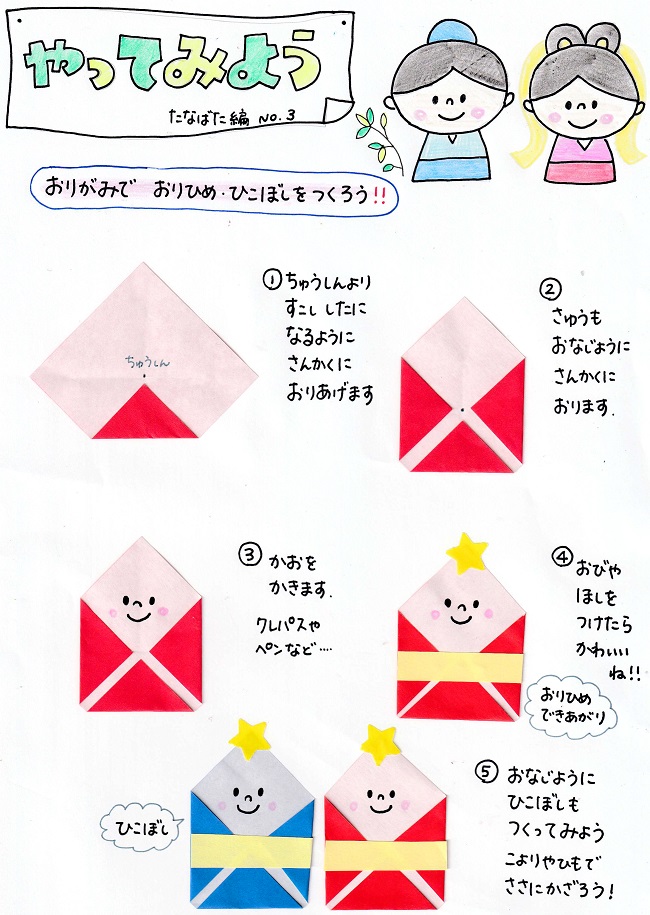 やってみよう
たなばた編 NO.3
おりがみで おりひめ・ひこぼしをつくろう!!
① ちゅうしんより
すこし したに
なるように
さんかくに
おりあげます
ちゅうしん
② さゆうも
おなじように
さんかくに
おります.
③ かおを
かきます.
クレパスや
ペンなど‥‥
④ おびや
ほしを
つけたら
かわいい
ね!!
おりひめ
できあがり
ひこぼし
⑤ おなじように
ひこぼしも
つくってみよう
こよりやひもで
ささにかざろう!